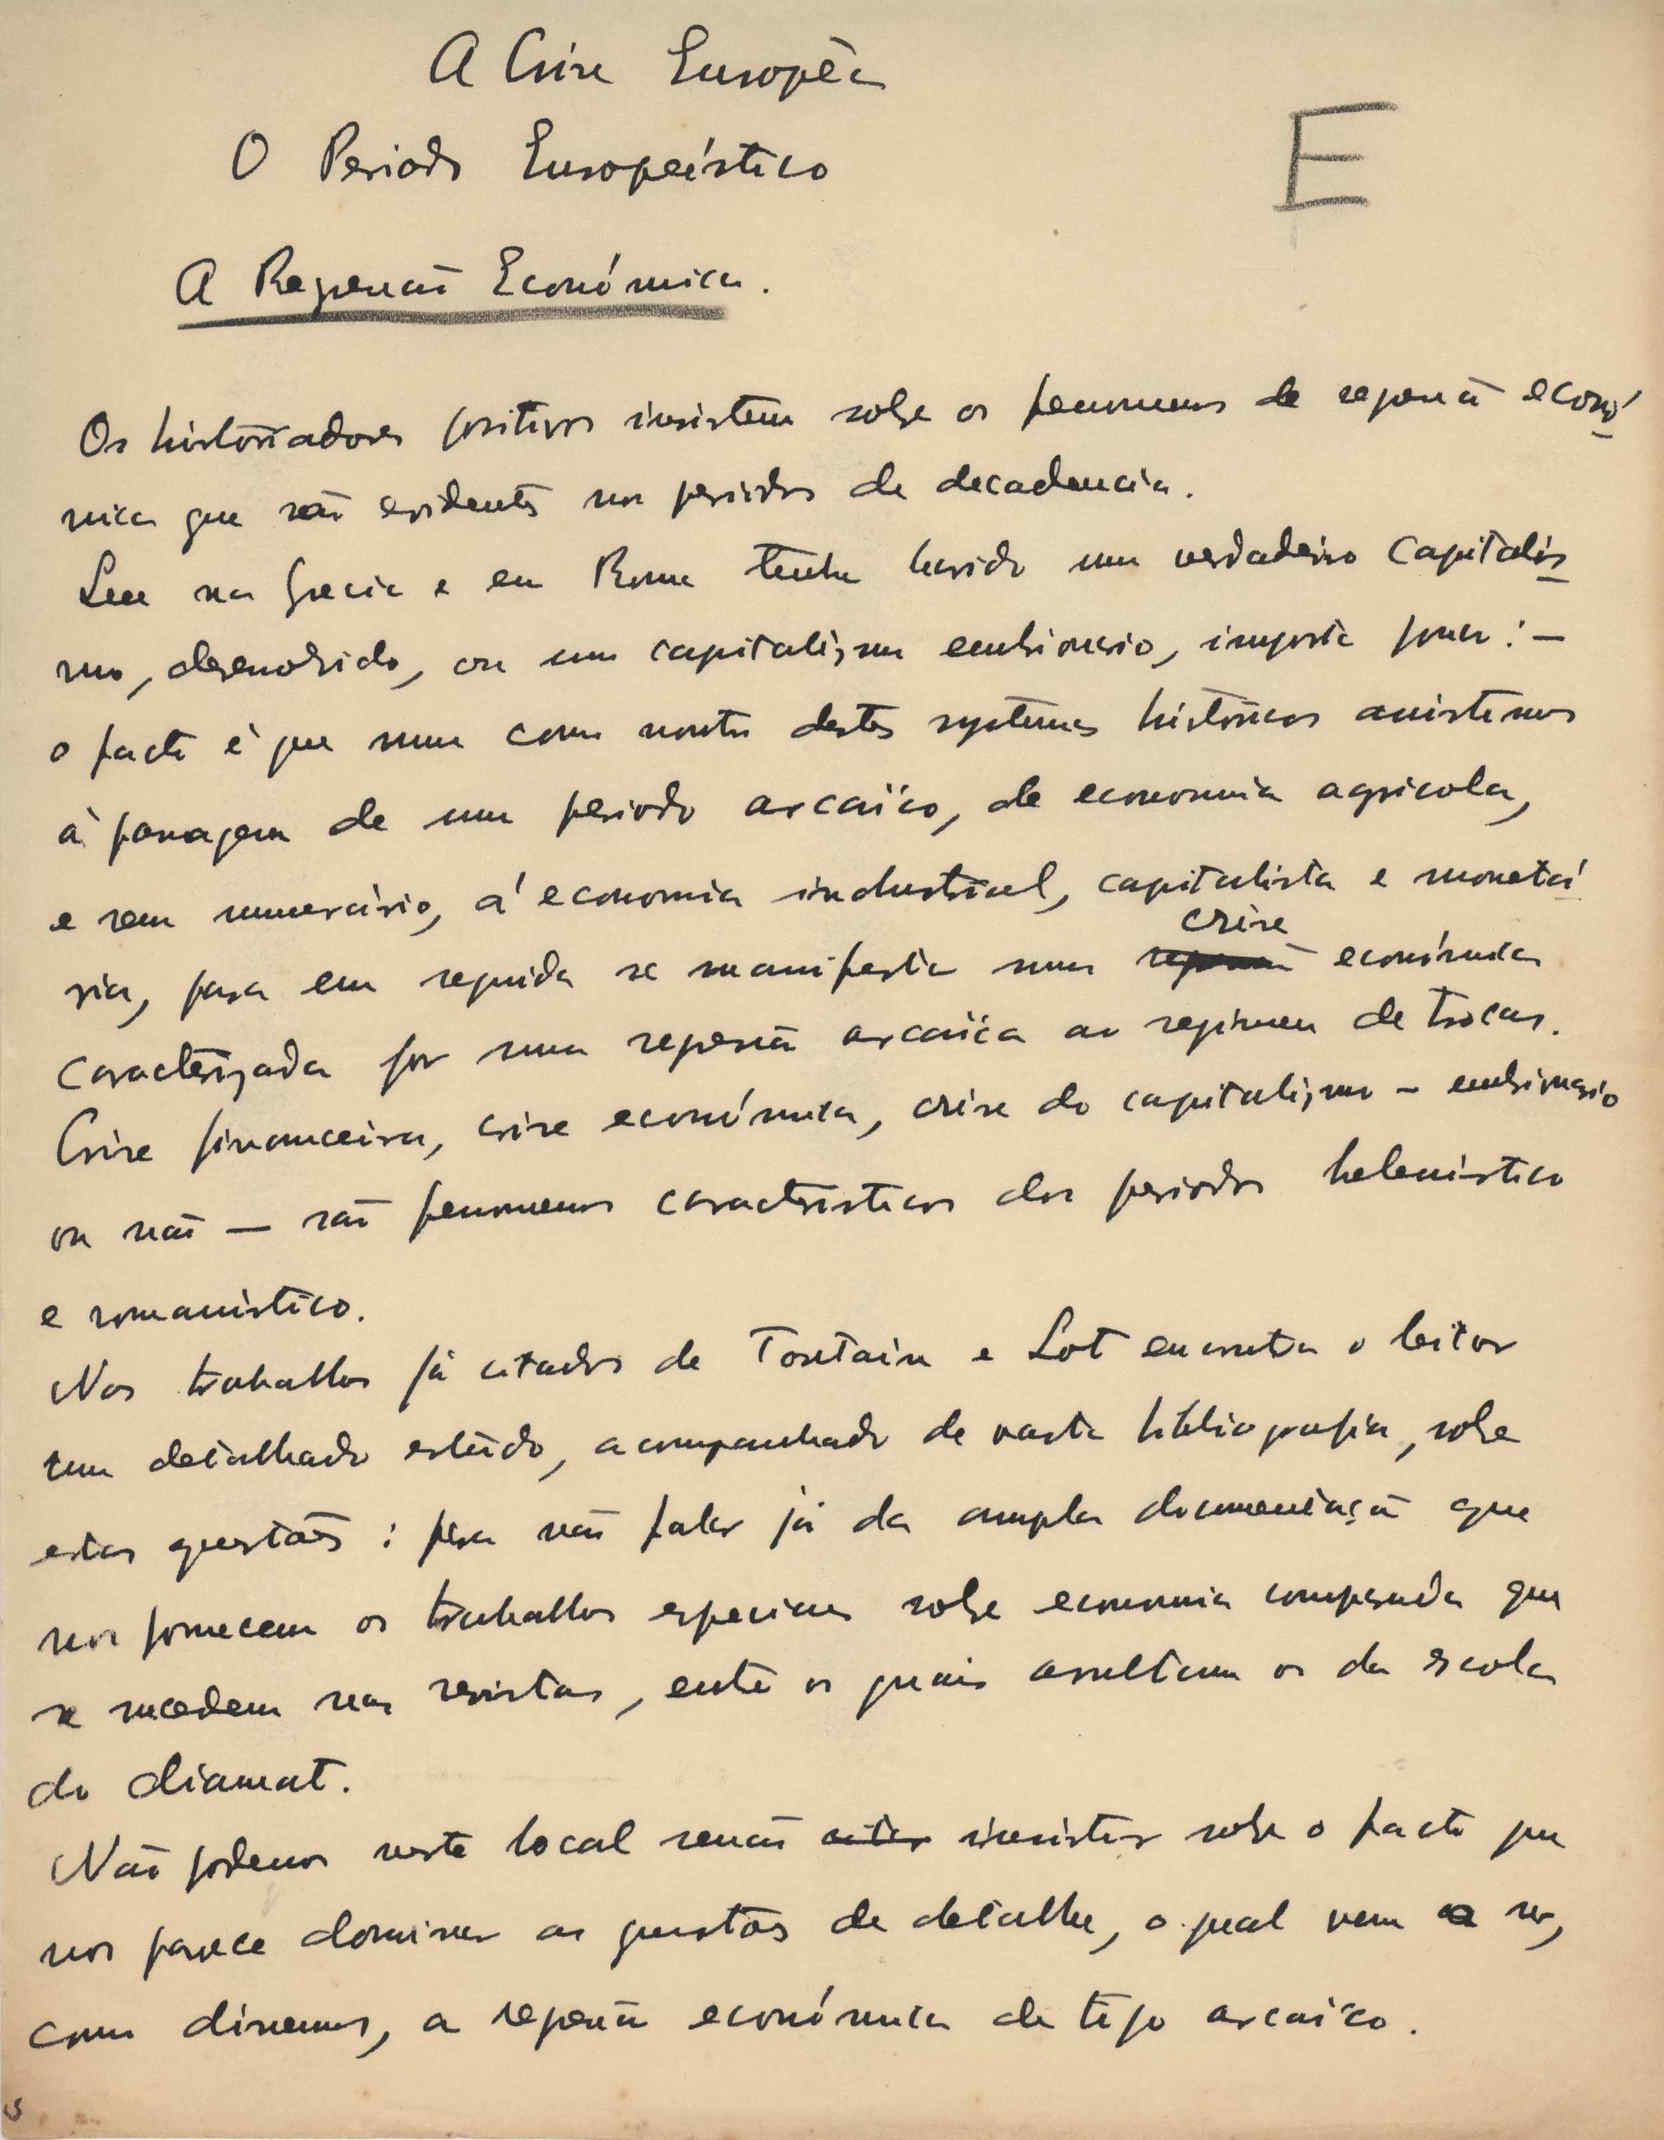 A Crise Europêa
O Periodo Europeístico
E
A Regressão Económica.
Os historiadores positivos insistem sobre os fenomenos de regressão econó
mica que são evidentes nos periodos de decadencia.
na Grecia e em Roma tenha havido um verdadeiro capitalis
mo, desenvolvido, ou um capitalismo embrionario, importa pouco: —
o facto é que num como noutro destes systemas históricos assistimos
à passagem de um periodo arcaïco, de economia agricola,
e sem numerário, á economia industrial, capitalista e monetá
ria, para em seguida se manifestar uma crise económica
caracterizada por uma regressão arcaïca ao regimen de trocas.
Crise financeira, crise económica, crise do capitalismo – embrionario
ou não — são fenomenos caracteristicos dos periodos helenistico
e romanistico.
Nos trabalhos já citados de Toutain e Lot encontra o leitor
um detalhado estudo, acompanhado de vasta bibliografia, sobre
estas questões: para não falar já da ampla documentação que
nos fornecem os trabalhos especiaes sobre economia comparada que
se sucedem nas revistas, entre os quais avultam os da escola
do diamat.
Não podemos neste local senão insistir sobre o facto que
nos parece dominar as questões de detalhe, o qual vem a ser,
como dissemos, a regressão económica de tipo arcaïco.